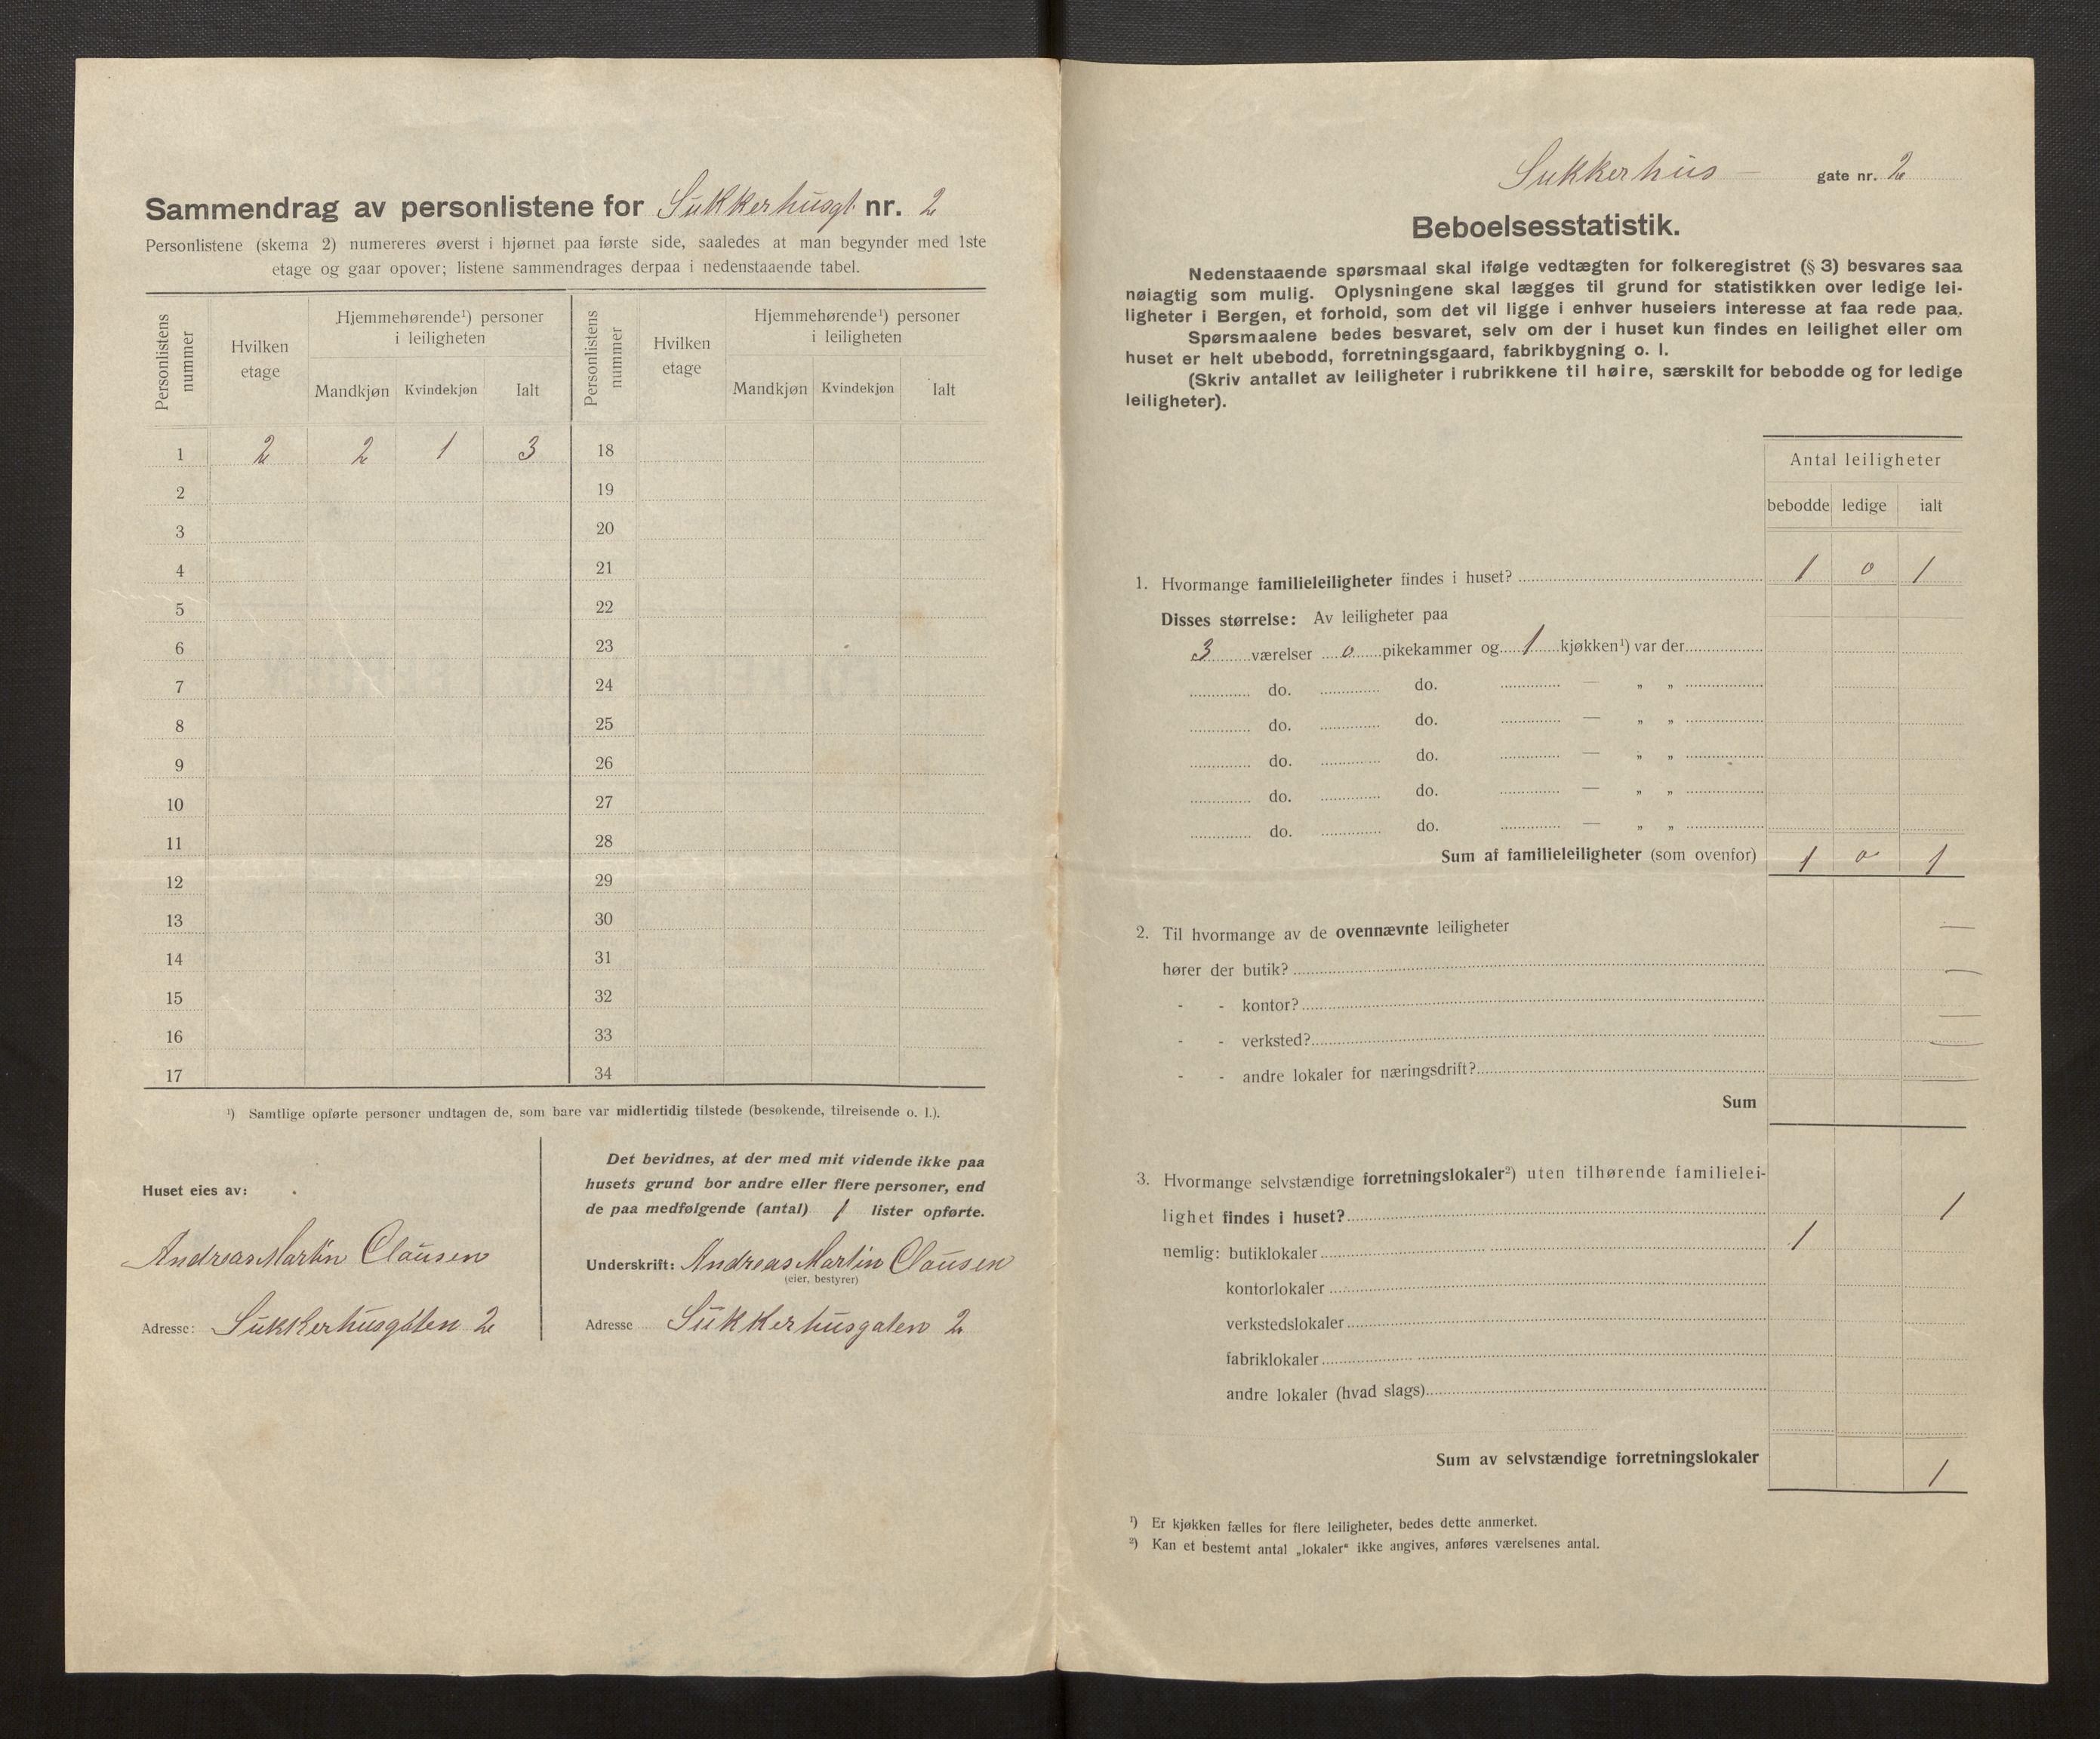 Sammendrag av personlistene for Sukkerhusgt. nr. 2
Personlistene (skema 2) numereres øverst i hjørnet paa første side, saaledes at man begynder med 1ste
etage og gaar opover; listene sammendrages derpaa i nedenstaaende tabel.
Personlistens nummer
Hvilken etage
Hjemmehørende¹) personer i leiligheten
Mandkjøn Kvindekjøn Ialt
Personlistens nummer
Hvilken etage
Hjemmehørende¹) personer i leiligheten
Mandkjøn Kvindekjøn Ialt
1 2 2 1 3 18
2 19
3 20
4 21
5 22
6 23
7 24
8 25
9 26
10 27
11 28
12 29
13 30
14 31
15 32
16 33
17 34
¹) Samtlige opførte personer undtagen de, som bare var midlertidig tilstede (besøkende, tilreisende o. l.).
Huset eies av:
Andreas Martin Clausen
Adresse: Sukkerhusgaten 2
Det bevidnes, at der med mit vidende ikke paa
husets grund bor andre eller flere personer, end
de paa medfølgende (antal) 1 lister opførte.
Underskrift: Andreas Martin Clausen
(eier, bestyrer)
Adresse Sukkerhusgaten 2
Sukkerhus- gate nr. 2
Beboelsesstatistik.
Nedenstaaende spørsmaal skal ifølge vedtægten for folkeregistret (§ 3) besvares saa
nøiagtig som mulig. Oplysningene skal lægges til grund for statistikken over ledige lei-
ligheter i Bergen, et forhold, som det vil ligge i enhver huseiers interesse at faa rede paa.
Spørsmaalene bedes besvaret, selv om der i huset kun findes en leilighet eller om
huset er helt ubebodd, forretningsgaard, fabrikbygning o. l.
(Skriv antallet av leiligheter i rubrikkene til høire, særskilt for bebodde og for ledige
leiligheter).
Antal leiligheter
bebodde ledige ialt
1. Hvormange familieleiligheter findes i huset? 1 0 1
Disses størrelse: Av leiligheter paa
3 værelser 0 pikekammer og 1 kjøkken¹) var der
do. do. — „ „
do. do. — „ „
do. do. — „ „
do. do. — „ „
do. do. — „ „
Sum af familieleiligheter (som ovenfor) 1 0 1
2. Til hvormange av de ovennævnte leiligheter —
hører der butik? —
- - kontor? —
- - verksted? —
- - andre lokaler for næringsdrift? —
Sum
3. Hvormange selvstændige forretningslokaler²) uten tilhørende familielei-
lighet findes i huset? 1
nemlig: butiklokaler 1
kontorlokaler
verkstedslokaler
fabriklokaler
andre lokaler (hvad slags)
Sum av selvstændige forretningslokaler 1
¹) Er kjøkken fælles for flere leiligheter, bedes dette anmerket.
²) Kan et bestemt antal „lokaler“ ikke angives, anføres værelsenes antal.